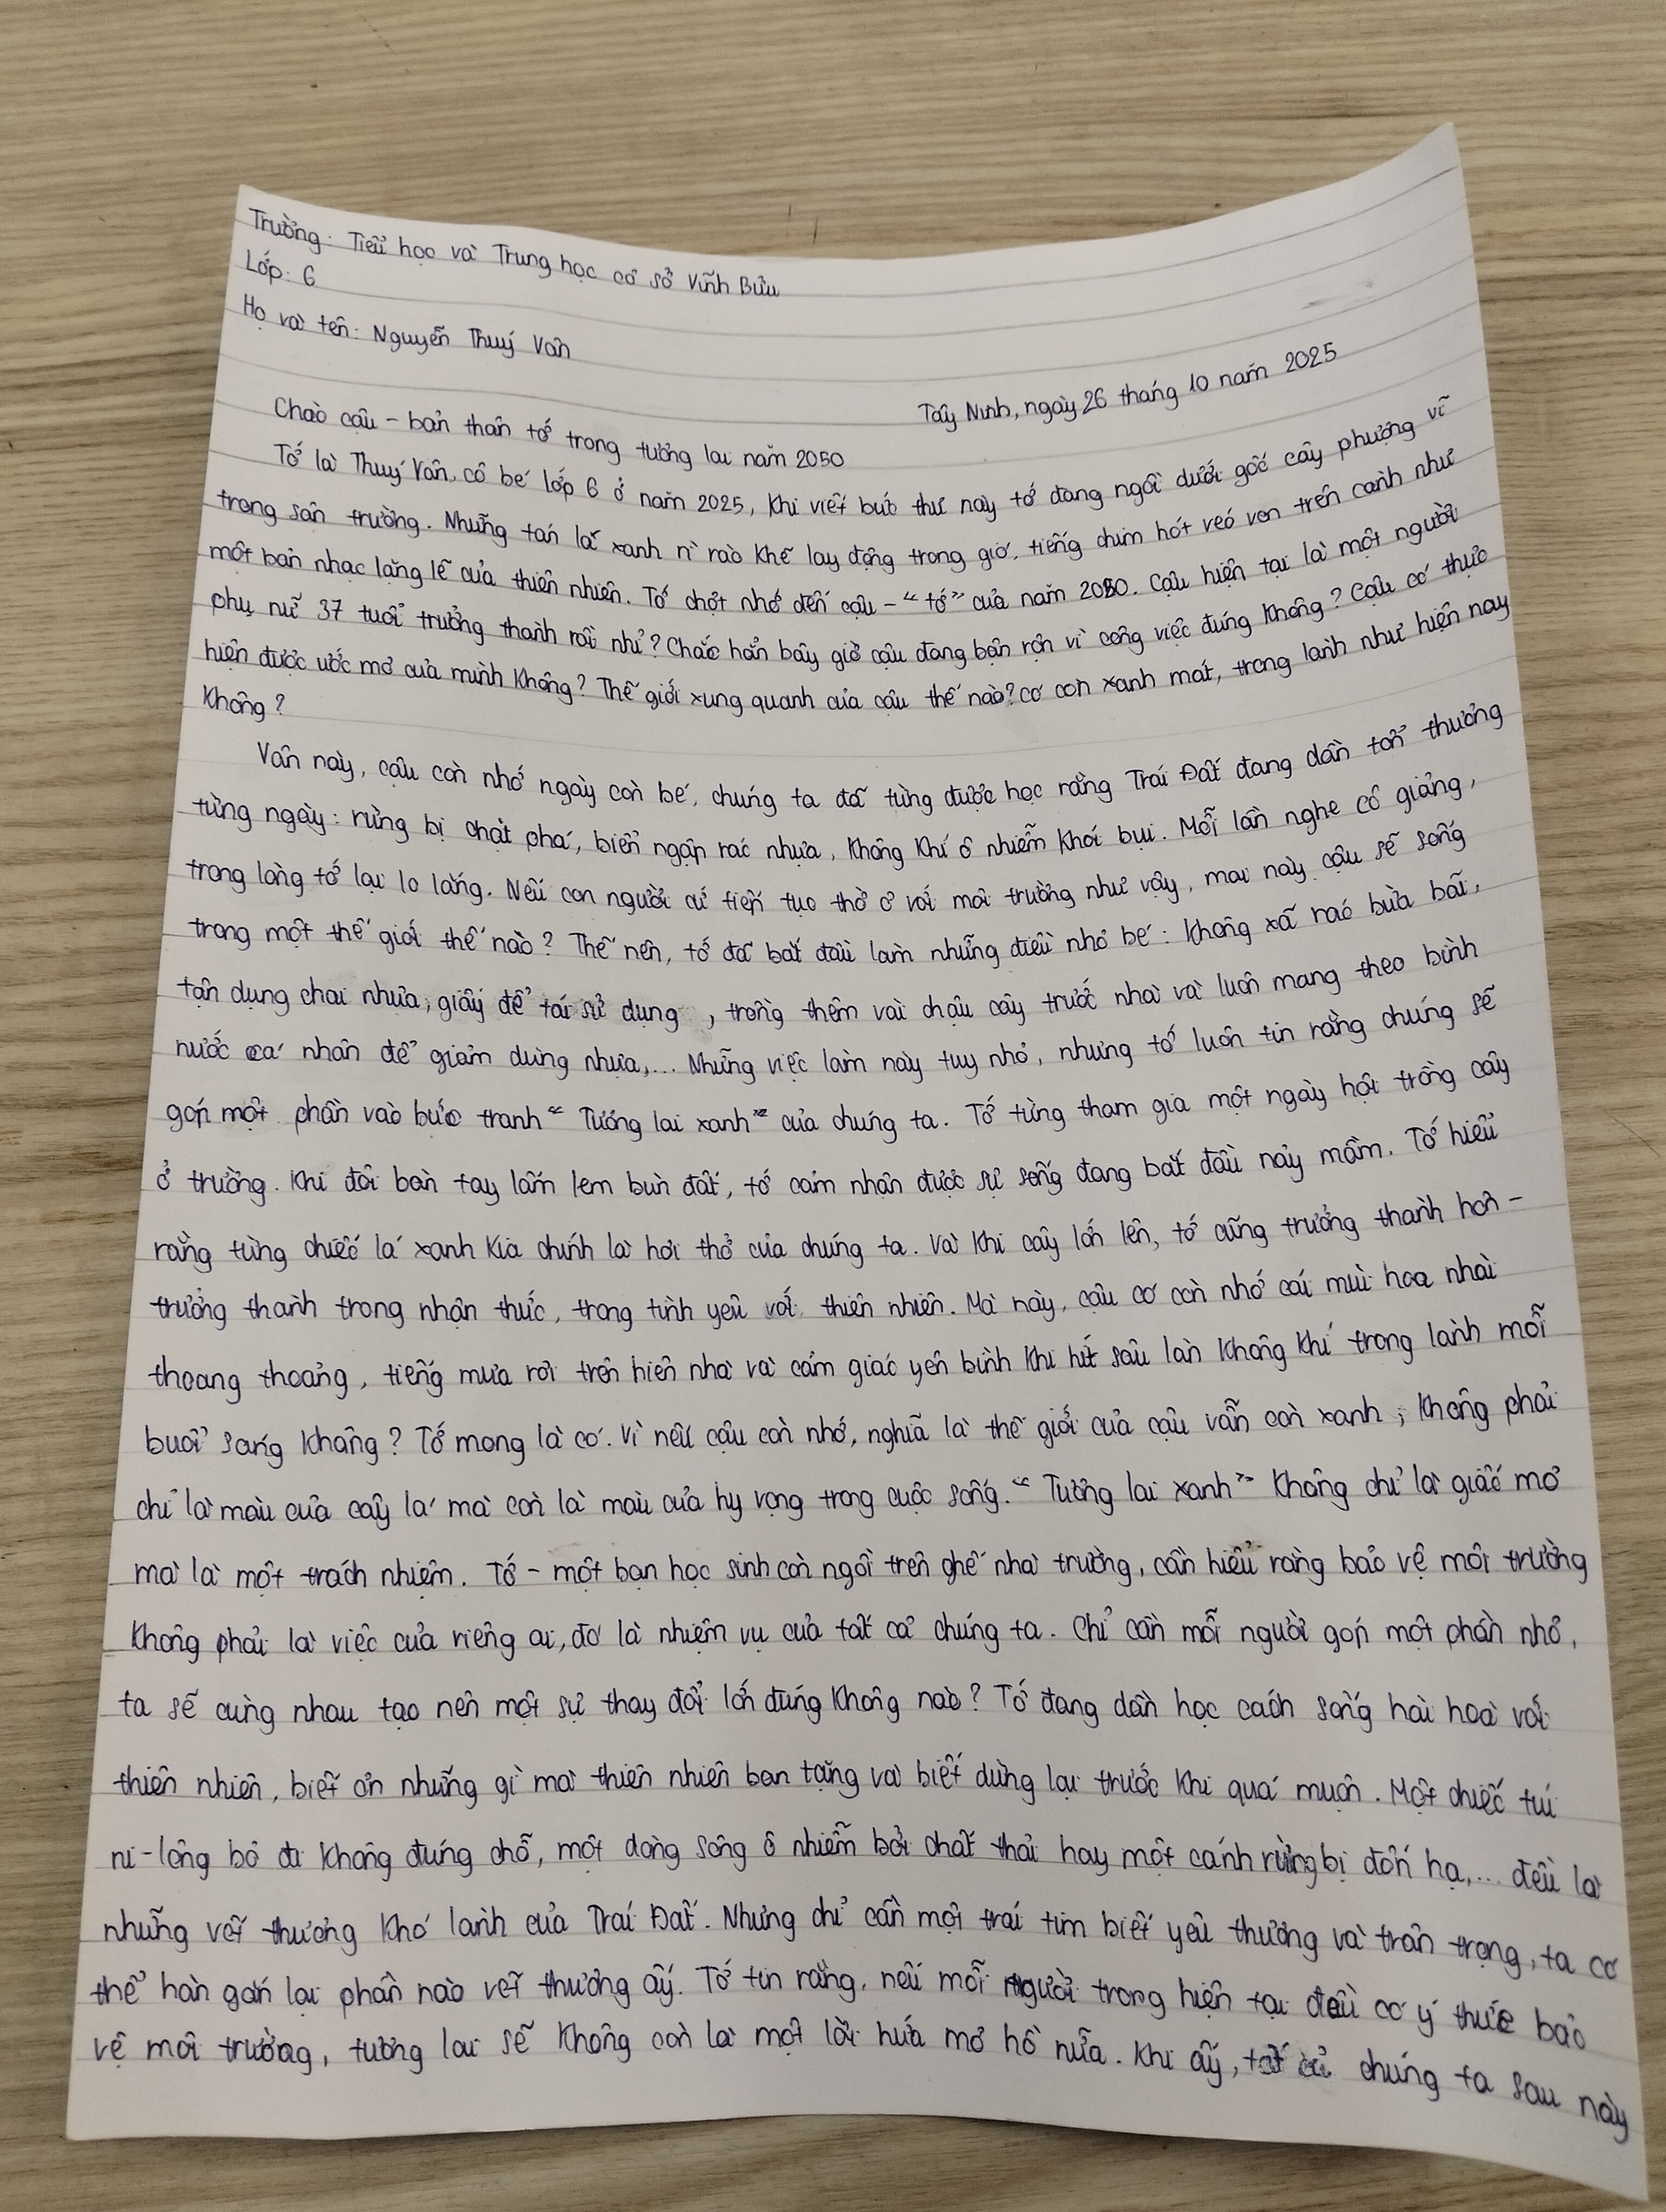 Trường: Tiểu học và Trung học cơ sở Vĩnh Bửu
Lớp: 6
Họ và tên: Nguyễn Thuý Vân
Tây Ninh, ngày 26 tháng 10 năm 2025
Chào cậu - bản thân tớ trong tương lai năm 2050
Tớ là Thuý Vân, cô bé lớp 6 ở năm 2025, khi viết bức thư này tớ đang ngồi dưới gốc cây phượng vĩ
trong sân trường. Những tán lá xanh rì rào khẽ lay động trong gió, tiếng chim hót véo von trên cành như
một bản nhạc lặng lẽ của thiên nhiên. Tớ chợt nhớ đến cậu - "tớ" của năm 2050. Cậu hiện tại là một người
phụ nữ 37 tuổi trưởng thành rồi nhỉ? Chắc hẳn bây giờ cậu đang bận rộn vì công việc đúng không? Cậu có thực
hiện được ước mơ của mình không? Thế giới xung quanh của cậu thế nào? có còn xanh mát, trong lành như hiện nay
không?
Vân này, cậu còn nhớ ngày còn bé, chúng ta đã từng được học rằng Trái Đất đang dần tổn thương
từng ngày: rừng bị chặt phá, biển ngập rác nhựa, không khí ô nhiễm khói bụi. Mỗi lần nghe cô giảng,
trong lòng tớ lại lo lắng. Nếu con người cứ tiếp tục thờ ơ với môi trường như vậy, mai này cậu sẽ sống
trong một thế giới thế nào? Thế nên, tớ đã bắt đầu làm những điều nhỏ bé: không xã rác bừa bãi,
tận dụng chai nhựa, giấy để tái sử dụng, trồng thêm vài chậu cây trước nhà và luôn mang theo bình
nước cá nhân để giảm dùng nhựa,... Những việc làm này tuy nhỏ, nhưng tớ luôn tin rằng chúng sẽ
góp một phần vào bức tranh "Tương lai xanh" của chúng ta. Tớ từng tham gia một ngày hội trồng cây
ở trường. Khi đôi bàn tay lấm lem bùn đất, tớ cảm nhận được sự sống đang bắt đầu nảy mầm. Tớ hiểu
rằng từng chiếc lá xanh kia chính là hơi thở của chúng ta. Và khi cây lớn lên, tớ cũng trưởng thành hơn -
trưởng thành trong nhận thức, trong tình yêu với thiên nhiên. Mà này, cậu có còn nhớ cái mùi hoa nhài
thoang thoảng, tiếng mưa rơi trên hiên nhà và cảm giác yên bình khi hít sâu làn không khí trong lành mỗi
buổi sáng không? Tớ mong là có. Vì nếu cậu còn nhớ, nghĩa là thế giới của cậu vẫn còn xanh; không phải
chỉ là màu của cây lá mà còn là màu của hy vọng trong cuộc sống. "Tương lai xanh" không chỉ là giấc mơ
mà là một trách nhiệm. Tớ - một bạn học sinh còn ngồi trên ghế nhà trường, cần hiểu rằng bảo vệ môi trường
không phải là việc của riêng ai, đó là nhiệm vụ của tất cả chúng ta. Chỉ cần mỗi người góp một phần nhỏ,
ta sẽ cùng nhau tạo nên một sự thay đổi lớn đúng không nào? Tớ đang dần học cách sống hài hoà với
thiên nhiên, biết ơn những gì mà thiên nhiên ban tặng và biết dừng lại trước khi quá muộn. Một chiếc túi
ni-lông bỏ đi không đúng chỗ, một dòng sông ô nhiễm bởi chất thải hay một cánh rừng bị đốn hạ,... đều là
những vết thương khó lành của Trái Đất. Nhưng chỉ cần một trái tim biết yêu thương và trân trọng, ta có
thể hàn gắn lại phần nào vết thương ấy. Tớ tin rằng, nếu mỗi người trong hiện tại đều có ý thức bảo
vệ môi trường, tương lai sẽ không còn là một lời hứa mơ hồ nữa. Khi ấy, tất cả chúng ta sau này